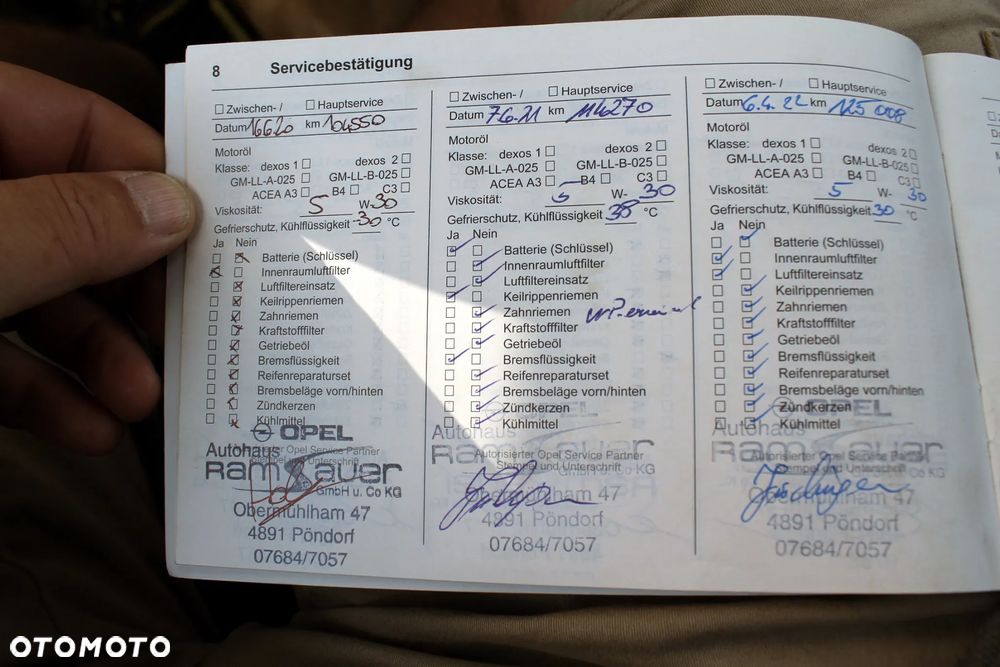 8 Servicebestätigung
☐ Zwischen- / ☐ Hauptservice
Datum 16620 km 104550
Motoröl
Klasse: dexos 1 ☐ dexos 2 ☐
GM-LL-A-025 ☐ GM-LL-B-025 ☐
ACEA A3 ☐ B4 ☐ C3 ☐
Viskosität: 5 W-30
Gefrierschutz, Kühlflüssigkeit -30 °C
Ja Nein
Batterie (Schlüssel)
Innenraumluftfilter
Luftfiltereinsatz
Keilrippenriemen
Zahnriemen
Kraftstofffilter
Getriebeöl
Bremsflüssigkeit
Reifenreparaturset
Bremsbeläge vorn/hinten
Zündkerzen
Kühlmittel
OPEL
Autorisierter Opel Service Partner
Stempel und Unterschrift
Autohaus
Ramsauer
GmbH u. Co KG
Obermühlham 47
4891 Pöndorf
07684/7057
☐ Zwischen- / ☐ Hauptservice
Datum 7.6.21 km 114270
Motoröl
Klasse: dexos 1 ☐ dexos 2 ☐
GM-LL-A-025 ☐ GM-LL-B-025 ☐
ACEA A3 ☐ B4 ☐ C3 ☐
Viskosität: 5 W-30
Gefrierschutz, Kühlflüssigkeit 38 °C
Ja Nein
Batterie (Schlüssel)
Innenraumluftfilter
Luftfiltereinsatz
Keilrippenriemen
Zahnriemen
Kraftstofffilter
Getriebeöl
Bremsflüssigkeit
Reifenreparaturset
Bremsbeläge vorn/hinten
Zündkerzen
Kühlmittel
OPEL
Autorisierter Opel Service Partner
Stempel und Unterschrift
Autohaus
Ramsauer
GmbH u. Co KG
Obermühlham 47
4891 Pöndorf
07684/7057
☐ Zwischen- / ☐ Hauptservice
Datum 6.4.22 km 125 008
Motoröl
Klasse: dexos 1 ☐ dexos 2 ☐
GM-LL-A-025 ☐ GM-LL-B-025 ☐
ACEA A3 ☐ B4 ☐ C3 ☐
Viskosität: 5 W-30
Gefrierschutz, Kühlflüssigkeit 30 °C
Ja Nein
Batterie (Schlüssel)
Innenraumluftfilter
Luftfiltereinsatz
Keilrippenriemen
Zahnriemen
Kraftstofffilter
Getriebeöl
Bremsflüssigkeit
Reifenreparaturset
Bremsbeläge vorn/hinten
Zündkerzen
Kühlmittel
OPEL
Autorisierter Opel Service Partner
Stempel und Unterschrift
Autohaus
Ramsauer
GmbH u. Co KG
Obermühlham 47
4891 Pöndorf
07684/7057
OTOMOTO